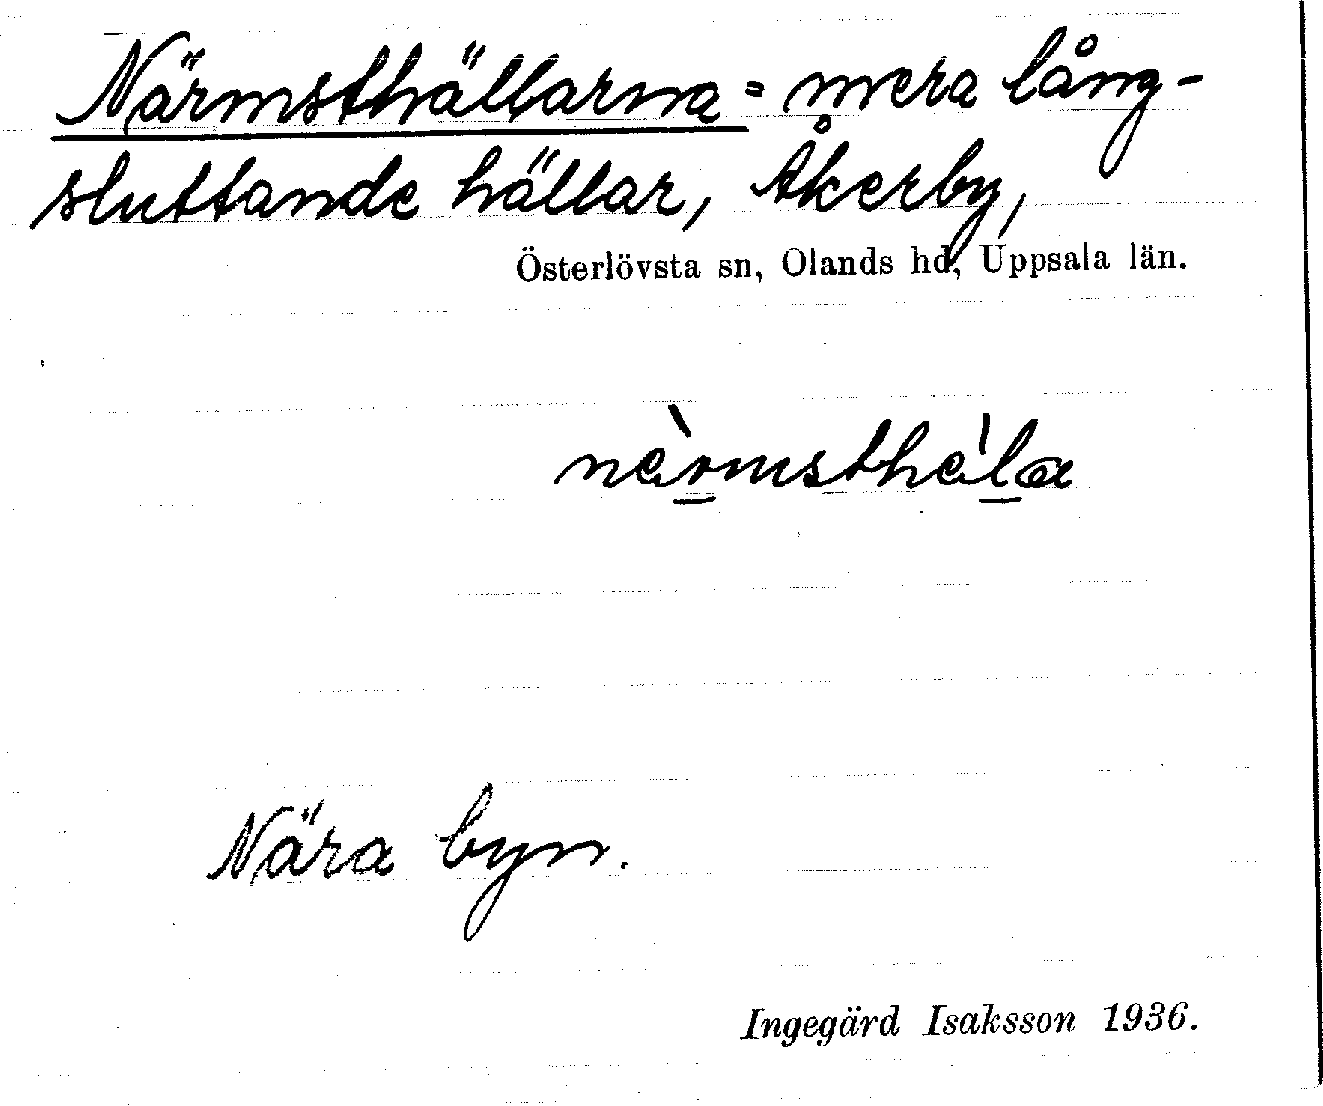 Närmsthällarna = mera lång-
sluttande hällar, Åkerby,
Österlövsta sn, Olands hd, Uppsala län.
nèrmsthèla
Nära byn.
Ingegärd Isaksson 1936.